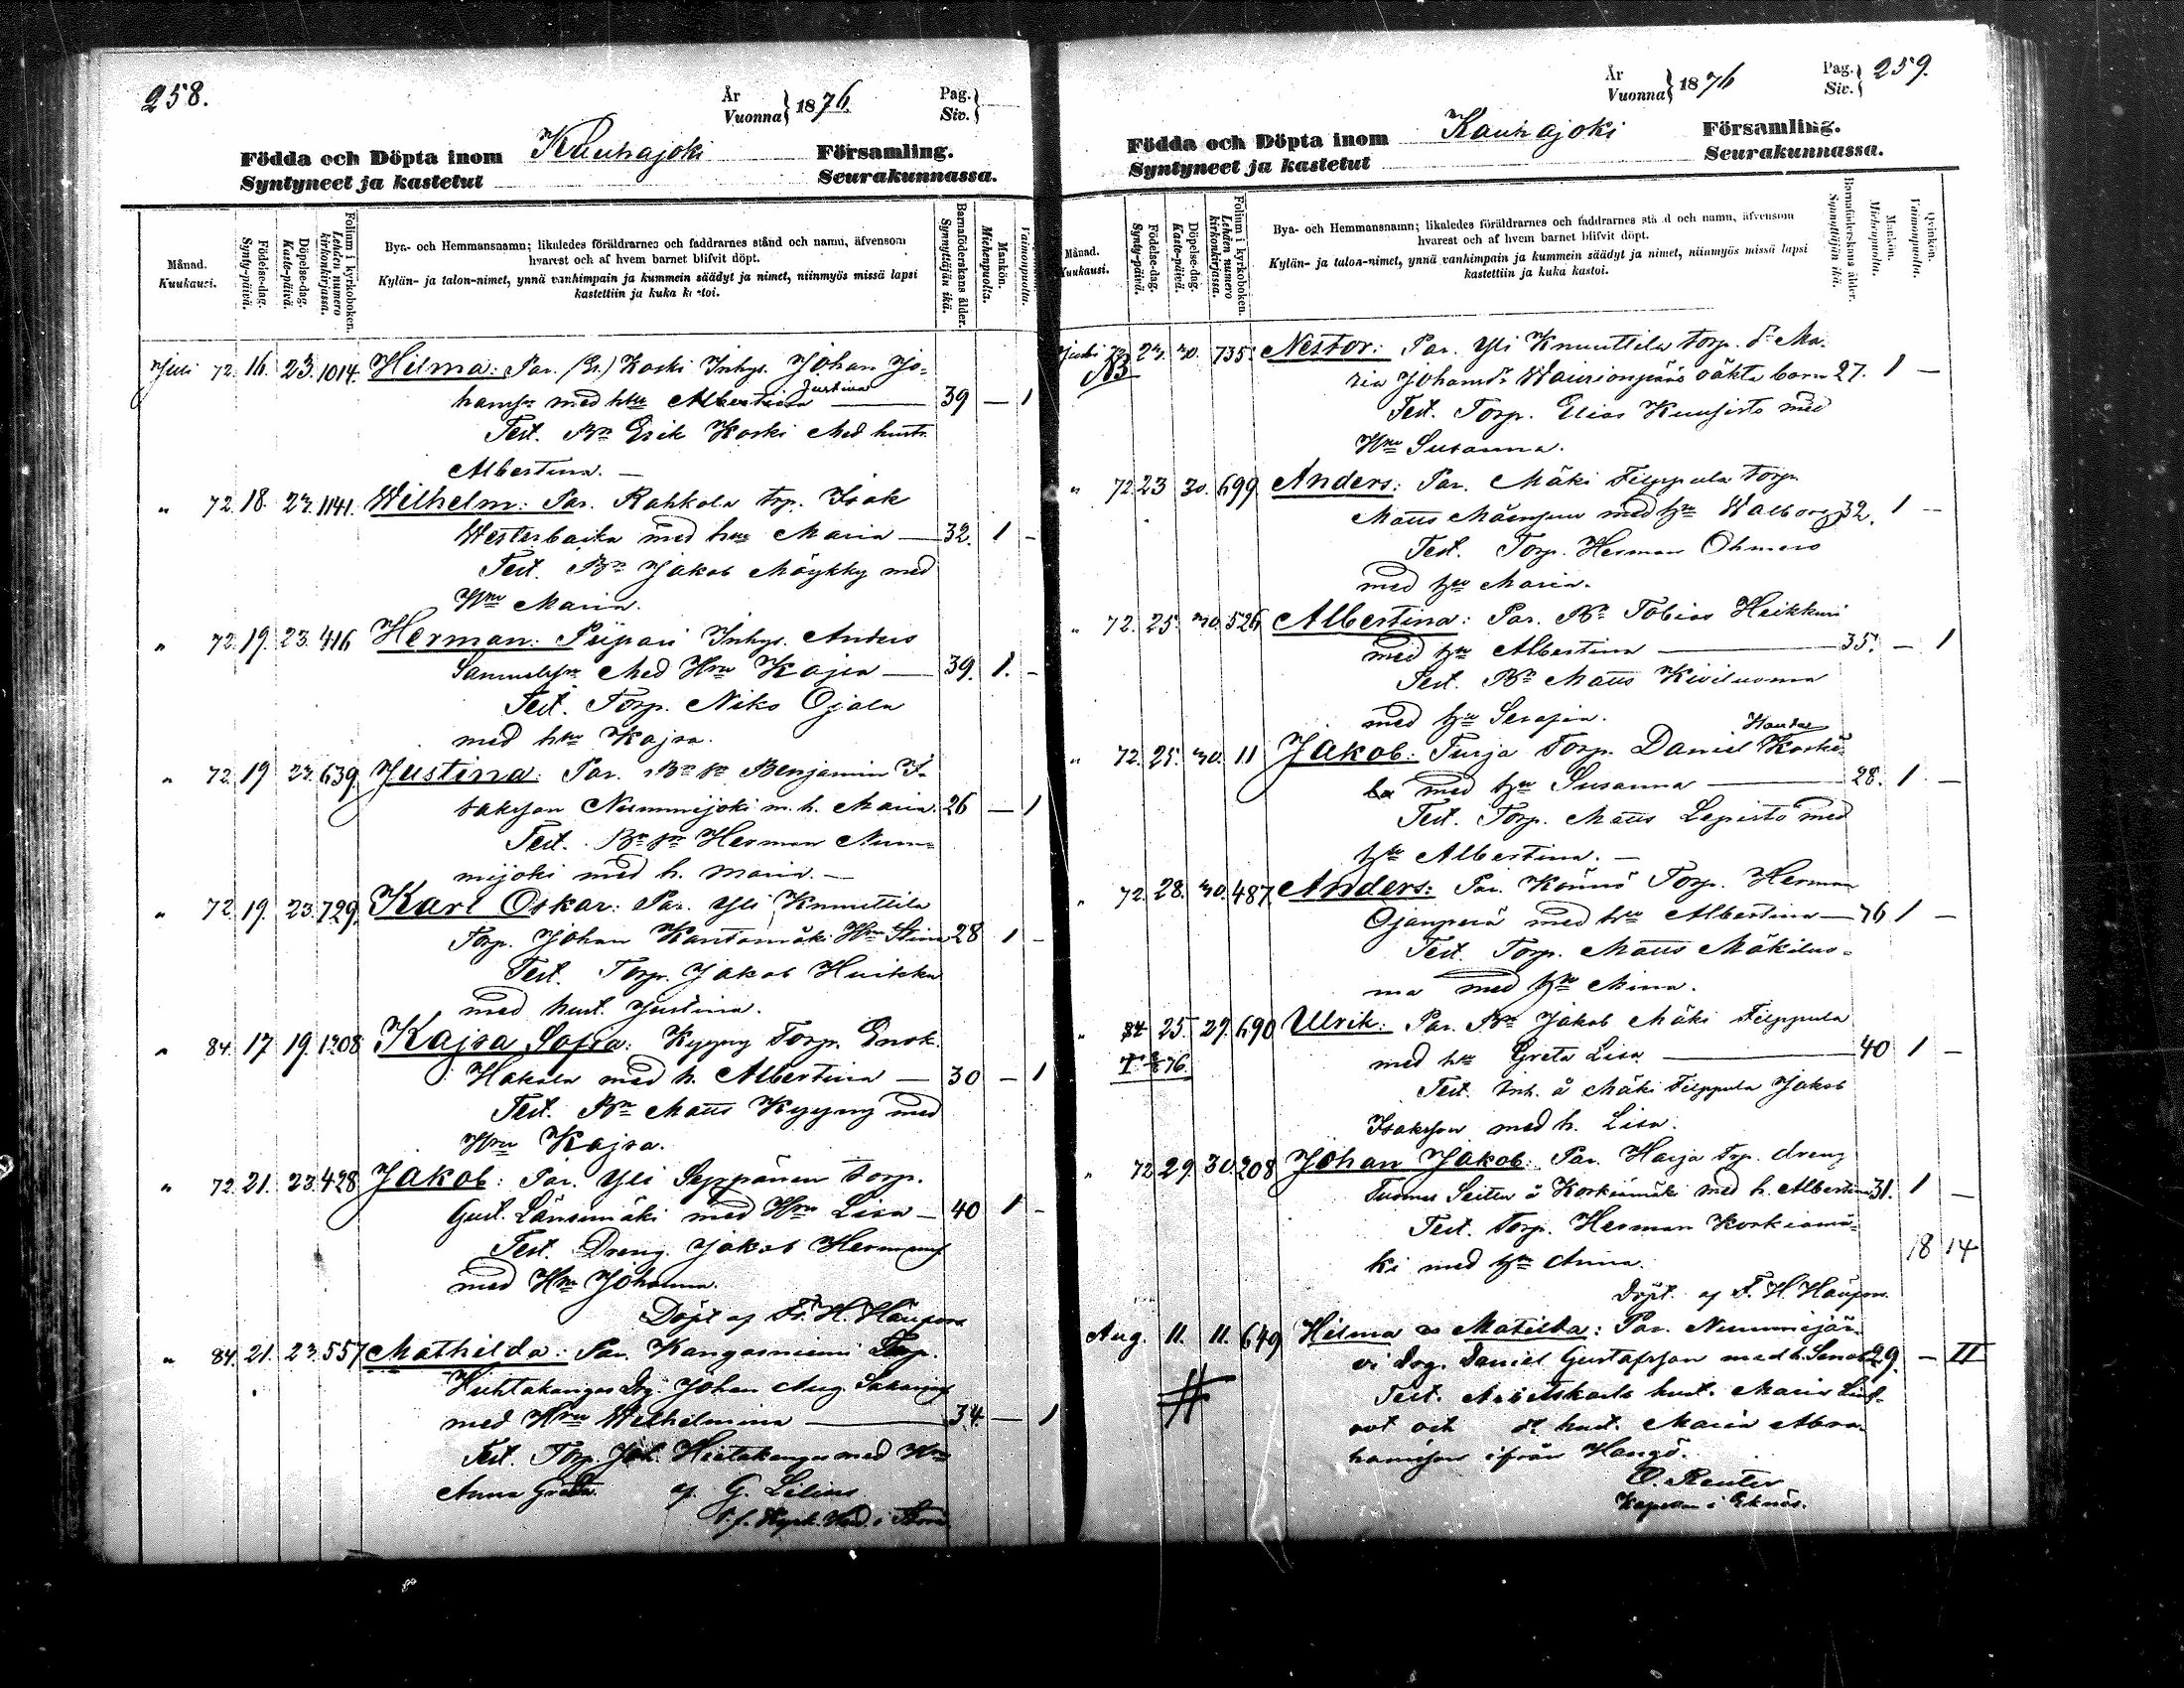 258.
År
Vuonna } 1876.
Pag.
Siv. }
Födda och Döpta inom Kauhajoki Församling.
Syntyneet ja kastetut Seurakunnassa.
Månad.
Kuukausi.
Födelse-dag.
Synty-päivä.
Döpelse-dag.
Kaste-päivä.
Folium i kyrkoboken.
Lehden numero kirkonkirjassa.
Bya- och Hemmansnamn; likaledes föräldrarnes och faddrarnes stånd och namn, äfvensom
hvarest och af hvem barnet blifvit döpt.
Kylän- ja talon-nimet, ynnä vanhimpain ja kummein säädyt ja nimet, niinmyös missä lapsi
kastettiin ja kuka kastoi.
Barnaföderskans ålder.
Synnyttäjän ikä.
Mankön.
Miehenpuolia.
Vaimonpuolia.
Juli 72. 16. 23. 1014. Hilma: Par. (Er.) Koski Inhys. Johan Jo-
Justina
hanss med hu Albertina — 39 — 1
Test. Bn Erik Koski Med hustr.
Albertina. —
" 72. 18. 23. 1141. Wilhelm: Par. Rahkola trp. Isak
Westerbacka med hu Maria — 32. 1 -
Test. Bn Jakob Möykky med
Hru Maria.
" 72. 19. 23. 416 Herman: Piipari Inhys. Anders
Samuelss Med Hru Kajsa — 39. 1. -
Test. Torp. Niko Ojala
med hu Kajsa.
" 72. 19 23. 639. Justina: Par. Bn sn Benjamin I-
saksson Nummijoki m. h. Maria. 26 — 1
Test. Bn sn Herman Num-
mijoki med h. Maria. —
" 72. 19. 23. 729. Karl Oskar: Par. Yli Knuuttila
Torp. Johan Kantomäki Hru Stina 28 1 -
Test. Torp. Jakob Huikku
med hust. Justina.
" 84. 17 19. 1208 Kajsa Sofia: Kyyny Torp. Enok
Hakola med h. Albertina — 30 - 1
Test. Bn Matts Kyyny med
Hru Kajsa.
" 72. 21. 23. 428 Jakob: Par. Yli Seppänen torp.
Gust. Länsimäki med Hru Lisa — 40 1 -
Test. Dreng. Jakob Hermanss
med Hru Johanna.
Döpt af Fr. H. Häupon
" 84. 21. 23. 557 Mathilda: Par. Kangasniemi Torp.
Hietakangas Drg. Johan Aug. Sakariss
med Hru Wilhelmina — 34. — 1
Test. Torp. Joh. Hietakangas med Hru
Anna Greta. af G. Lilius
259.
År
Vuonna } 1876
Pag.
Siv. }
Födda och Döpta inom Kauhajoki Församling.
Syntyneet ja kastetut Seurakunnassa.
Månad.
Kuukausi.
Födelse-dag.
Synty-päivä.
Döpelse-dag.
Kaste-päivä.
Folium i kyrkoboken.
Lehden numero kirkonkirjassa.
Bya- och Hemmansnamn; likaledes föräldrarnes och faddrarnes stånd och namn, äfvensom
hvarest och af hvem barnet blifvit döpt.
Kylän- ja talon-nimet, ynnä vanhimpain ja kummein säädyt ja nimet, niinmyös missä lapsi
kastettiin ja kuka kastoi.
Barnaföderskans ålder.
Synnyttäjän ikä.
Mankön.
Miehenpuolia.
Qvinkön.
Vaimonpuolia.
Juli 72 23. 30. 735. Nestor: Par. Yli Knuuttila torp. dr Ma-
NB
ria Johansdr Wainionpää's oäkta barn 27. 1 —
Test. Torp. Elias Kuusisto med
Hru Susanna.
" 72. 23 30. 699 Anders: Par. Mäki Filppula torp.
Matts Mäenpää med hu Walborg 32. 1 —
Test. Torp. Herman Ohmero
med hu Maria.
" 72. 25. 30. 526 Albertina: Par. Bn Tobias Heikkuri
med hu Albertina — 35. — 1
Test. Bn Matts Kiviluoma
med hu Serafia.
" 72. 25. 30. 11 Jakob: Turja Torp. Daniel Koski-
la med hu Susanna — 28. 1 —
Test. Torp. Matts Lepistö med
hu Albertina. —
" 72. 28. 30. 487 Anders: Par. Könnö Torp. Herman
Ojanperä med hu Albertina — 76 1 —
Test. Torp. Matts Mäkiluo-
ma med hu Mina.
" 84 25. 29. 690 Ulrik: Par. Bn Jakob Mäki Filppula
med hu Greta Lisa — 40 1 —
Test. Inh. å Mäki Filppula Jakob
Isaksson med h. Lisa.
" 72 29. 30. 208 Johan Jakob: Par. Harja Trp. dreng
Tuomas Seittu å Korkiamäki med h. Albertina 31. 1 —
Test. Torp. Herman Korkiamä-
ki med hu Anna.
18 14
Döpt. af F. H. Häupon.
Aug. 11. 11. 649 Hilma Matilda: Par. Nummijär-
vi Drg. Daniel Gustafsson med h. Sanna 29. — II
Test. Arbetskarls hust. Maria Lind-
rot och hust. Maria Abra-
hamsson ifrån Hangö.
O. Reuter
Kaplan i Ekenäs.